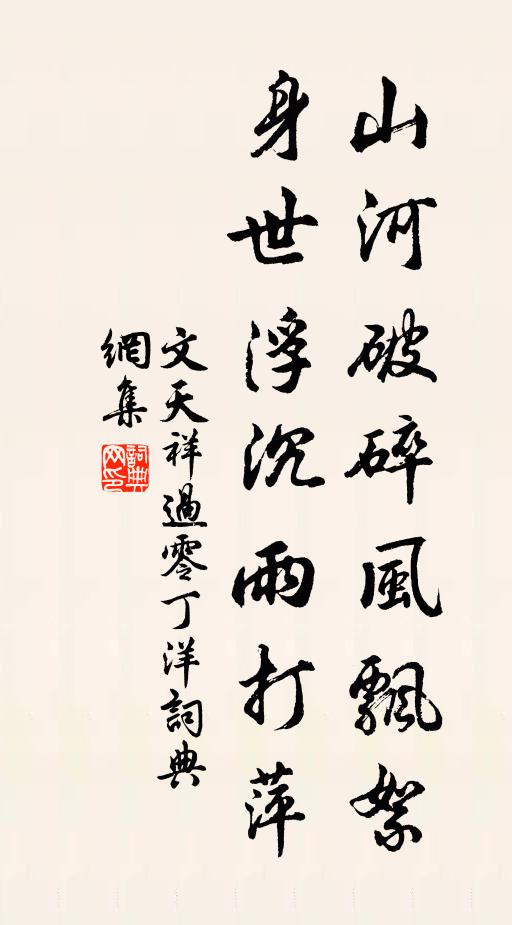 山河破碎風飄絮
身世浮沉雨打萍
文天祥過零丁洋詞典
網集
詞典網印